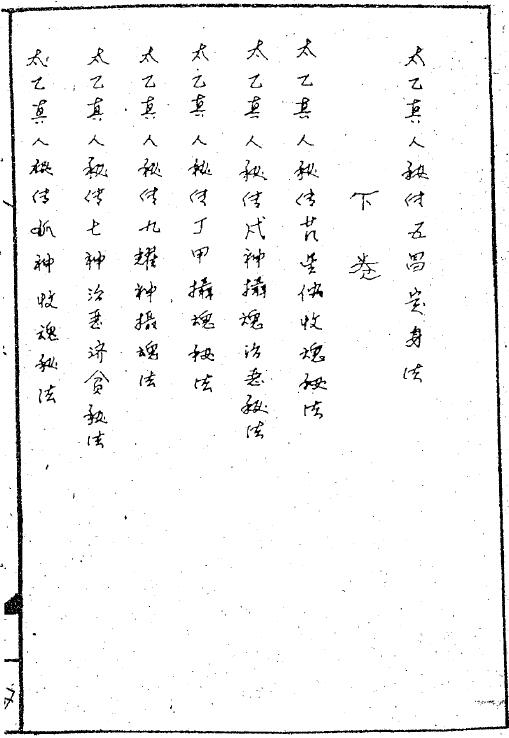 太乙真人秘传五昌定身法
下卷
太乙真人秘传茅山仙收魂秘法
太乙真人秘传戊神攝魂治恶秘法
太乙真人秘传丁甲攝魂秘法
太乙真人秘传九耀神摄魂法
太乙真人秘传七神治恶济贫秘法
太乙真人秘传神收魂秘法